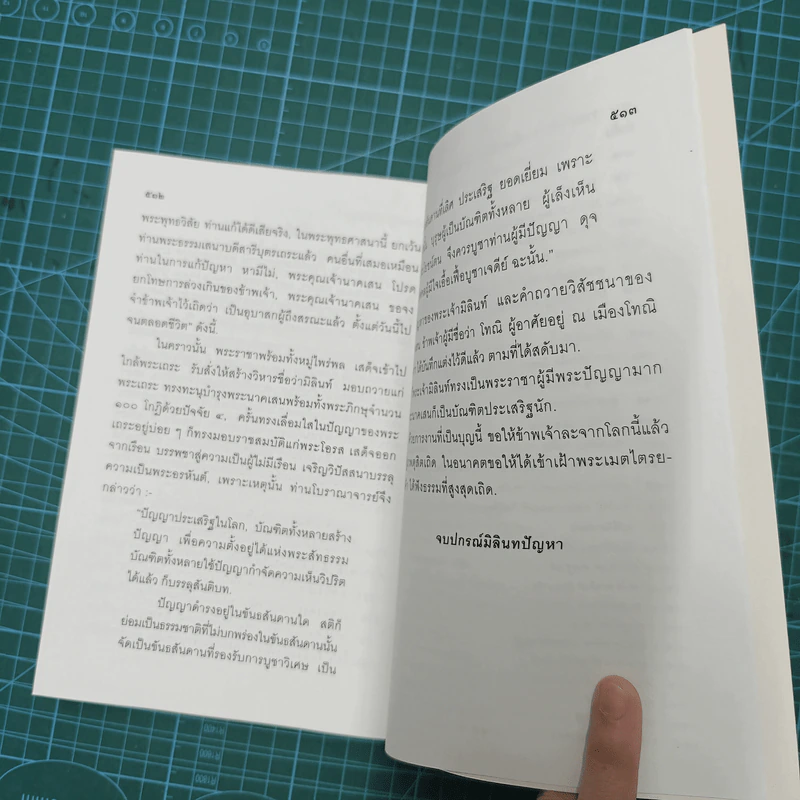 ๕๑๒
พระพุทธวิสัย ท่านแก้ได้ดีเสียจริง, ในพระพุทธศาสนานี้ ยกเว้น
ท่านพระธรรมเสนาบดีสารีบุตรเถระแล้ว คนอื่นที่เสมอเหมือน
ท่านในการแก้ปัญหา หามีไม่, พระคุณเจ้านาคเสน โปรด
ยกโทษการล่วงเกินของข้าพเจ้า, พระคุณเจ้านาคเสน ขอจง
จำข้าพเจ้าไว้เถิดว่า เป็นอุบาสกผู้ถึงสรณะแล้ว ตั้งแต่วันนี้ไป
จนตลอดชีวิต" ดังนี้.
ในคราวนั้น พระราชาพร้อมทั้งหมู่ไพร่พล เสด็จเข้าไป
ใกล้พระเถระ รับสั่งให้สร้างวิหารชื่อว่ามิลินท์ มอบถวายแก่
พระเถระ ทรงทะนุบำรุงพระนาคเสนพร้อมทั้งพระภิกษุจำนวน
๑๐๐ โกฏิด้วยปัจจัย ๔, ครั้นทรงเลื่อมใสในปัญญาของพระ
เถระอยู่บ่อย ๆ ก็ทรงมอบราชสมบัติแก่พระโอรส เสด็จออก
จากเรือน บรรพชาสู่ความเป็นผู้ไม่มีเรือน เจริญวิปัสสนาบรรลุ
ความเป็นพระอรหันต์, เพราะเหตุนั้น ท่านโบราณาจารย์จึง
กล่าวว่า :-
"ปัญญาประเสริฐในโลก, บัณฑิตทั้งหลายสร้าง
ปัญญา เพื่อความตั้งอยู่ได้แห่งพระสัทธรรม
บัณฑิตทั้งหลายใช้ปัญญากำจัดความเห็นวิปริต
ได้แล้ว ก็บรรลุสันติบท.
ปัญญาดำรงอยู่ในขันธสันดานใด สติก็
ย่อมเป็นธรรมชาติที่ไม่บกพร่องในขันธสันดานนั้น
จัดเป็นขันธสันดานที่รองรับการบูชาวิเศษ เป็น
๕๑๓
ดานที่เลิศ ประเสริฐ ยอดเยี่ยม เพราะ
บุรุษผู้เป็นบัณฑิตทั้งหลาย ผู้เล็งเห็น
จึงควรบูชาท่านผู้มีปัญญา ดุจ
ผู้มีใจเอื้อเฟื้อบูชาเจดีย์ ฉะนั้น."
ของพระเจ้ามิลินท์ และคำถวายวิสัชชนาของ
ข้าพเจ้าผู้มีชื่อว่า โทณิ ผู้อาศัยอยู่ ณ เมืองโทณิ
ได้บันทึกแต่งไว้ดีแล้ว ตามที่ได้สดับมา.
พระเจ้ามิลินท์ทรงเป็นพระราชาผู้มีพระปัญญามาก
นาคเสนก็เป็นบัณฑิตประเสริฐนัก.
การงานที่เป็นบุญนี้ ขอให้ข้าพเจ้าละจากโลกนี้แล้ว
ดุสิตเถิด ในอนาคตขอให้ได้เข้าเฝ้าพระเมตไตรย-
ได้ฟังธรรมที่สูงสุดเถิด.
จบปกรณ์มิลินทปัญหา